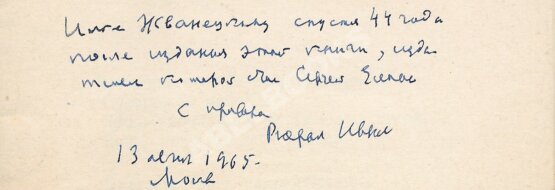 Инге Жванецкому спустя 44 года
после издания этой книги, изда
телем которой был Сергей Есенин
С привет
Рюрик Ивнев
13 август 1965.
Москва